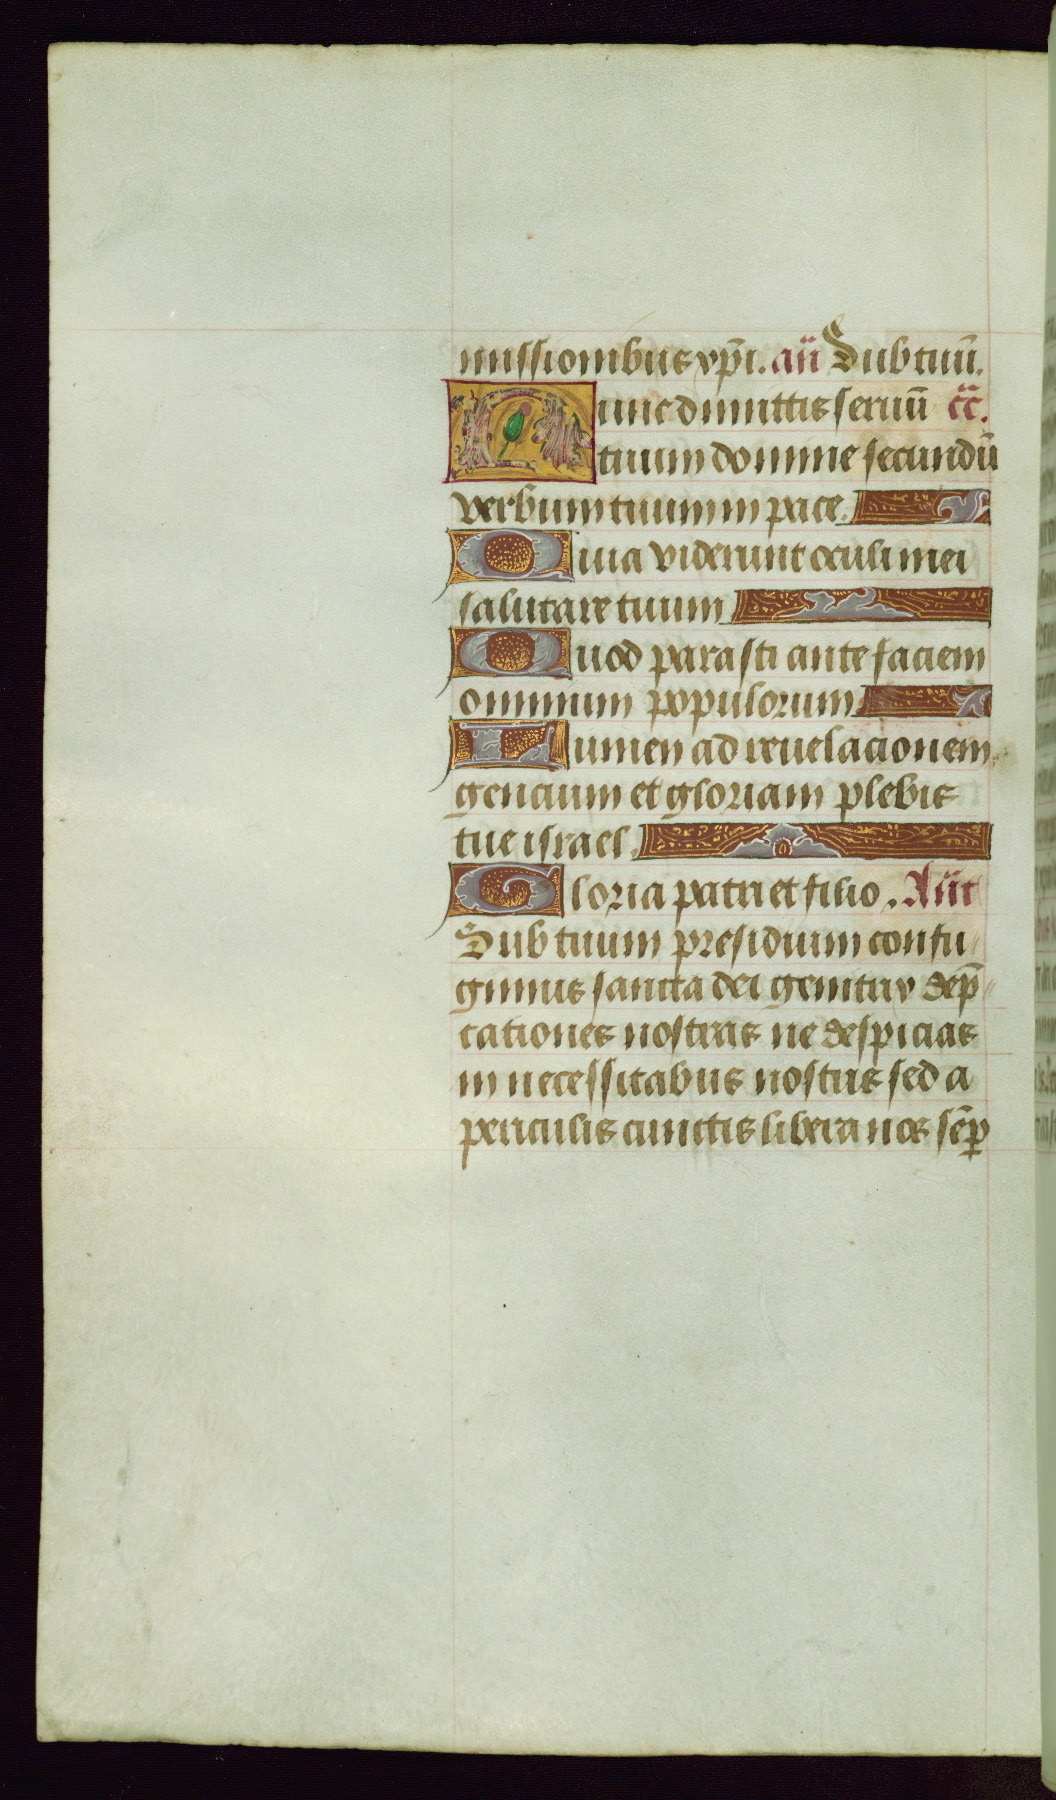 missionibus xp̄i. añ Sub tuū.
Nunc dimittis seruū c̄c̄.
tuum domine secundū
verbum tuum in pace.
Quia viderunt oculi mei
salutare tuum
Quod parasti ante faciem
omnium populorum
Lumen ad reuelacionem
gencium et gloriam plebis
tue israel.
Gloria patri et filio. Añt
Sub tuum presidium confu
gimus sancta dei genitrix dep̄
cationes nostras ne despicias
in necessitabus nostris sed a
periculis cunctis libera nos sēp